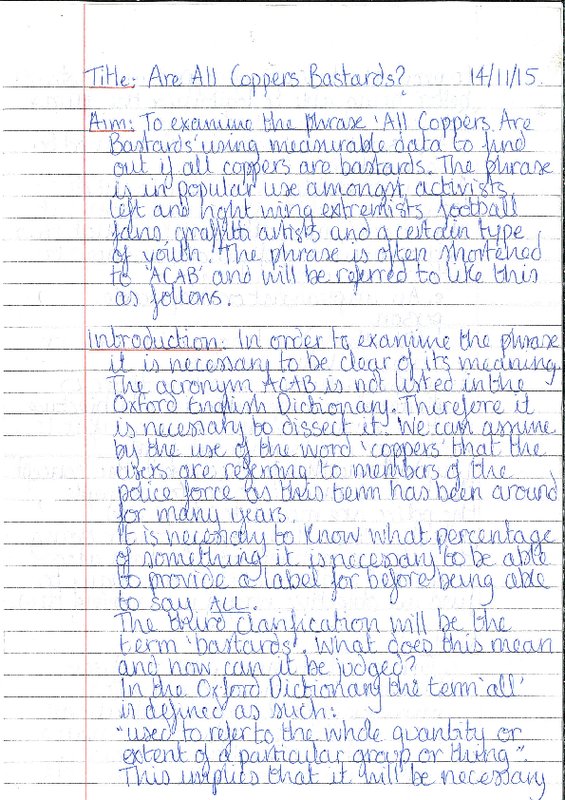 Title: Are All Coppers Bastards? 14/11/15.
Aim: To examine the phrase 'All Coppers Are
Bastards' using measurable data to find
out if all coppers are bastards. The phrase
is in popular use amongst activists,
left and right wing extremists, football
fans, graffiti artists and a certain type
of youth. The phrase is often shortened
to 'ACAB' and will be referred to like this
as follows.
Introduction: In order to examine the phrase
it is necessary to be clear of its meaning.
The acronym ACAB is not listed in the
Oxford English Dictionary. Therefore it
is necessary to dissect it. We can assume
by the use of the word 'coppers' that the
users are referring to members of the
police force as this term has been around
for many years.
It is necessary to know what percentage
of something it is necessary to be able
to provide a label for before being able
to say ALL.
The third clarification will be the
term 'bastards'. What does this mean
and how can it be judged?
In the Oxford Dictionary the term 'all'
is defined as such:
"used to refer to the whole quantity or
extent of a particular group or thing".
This implies that it will be necessary